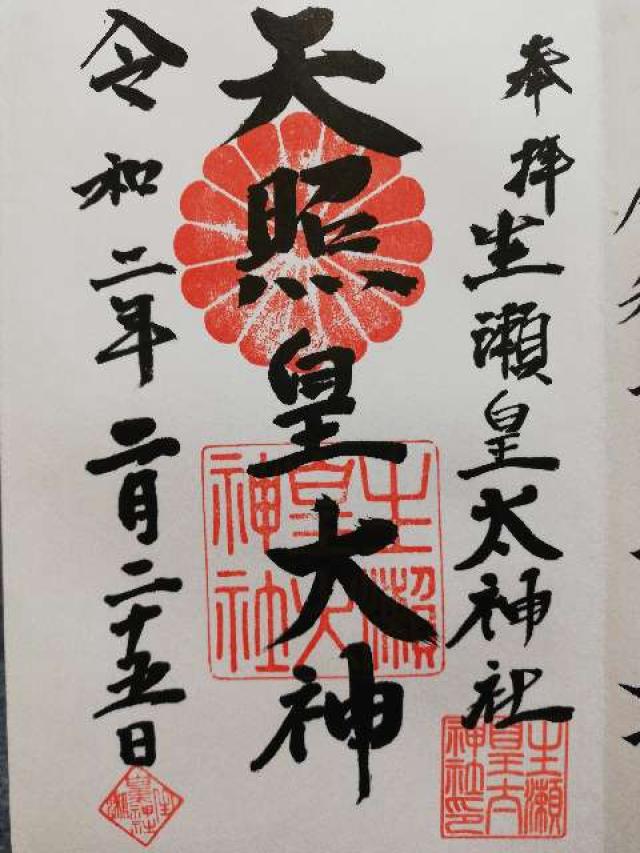 奉拝
生瀬皇太神社
天照皇大神
令和二年二月二十五日
生瀬
皇太
神社
生瀬
皇太
神社印